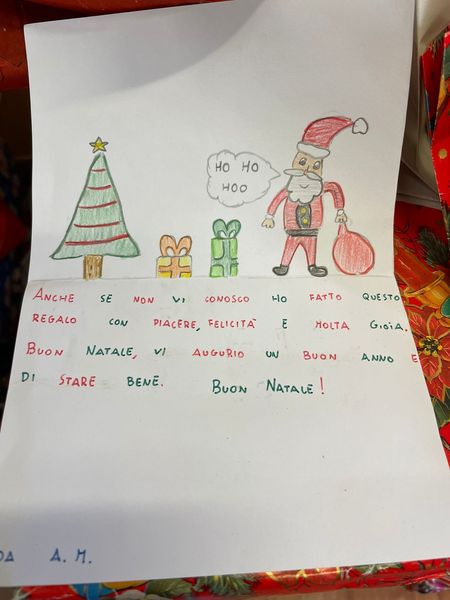 HO HO
HOO
ANCHE SE NON VI CONOSCO HO FATTO QUESTO
REGALO CON PIACERE, FELICITÀ E MOLTA GIOIA.
BUON NATALE, VI AUGURIO UN BUON ANNO E
DI STARE BENE. BUON NATALE!
DA A. M.